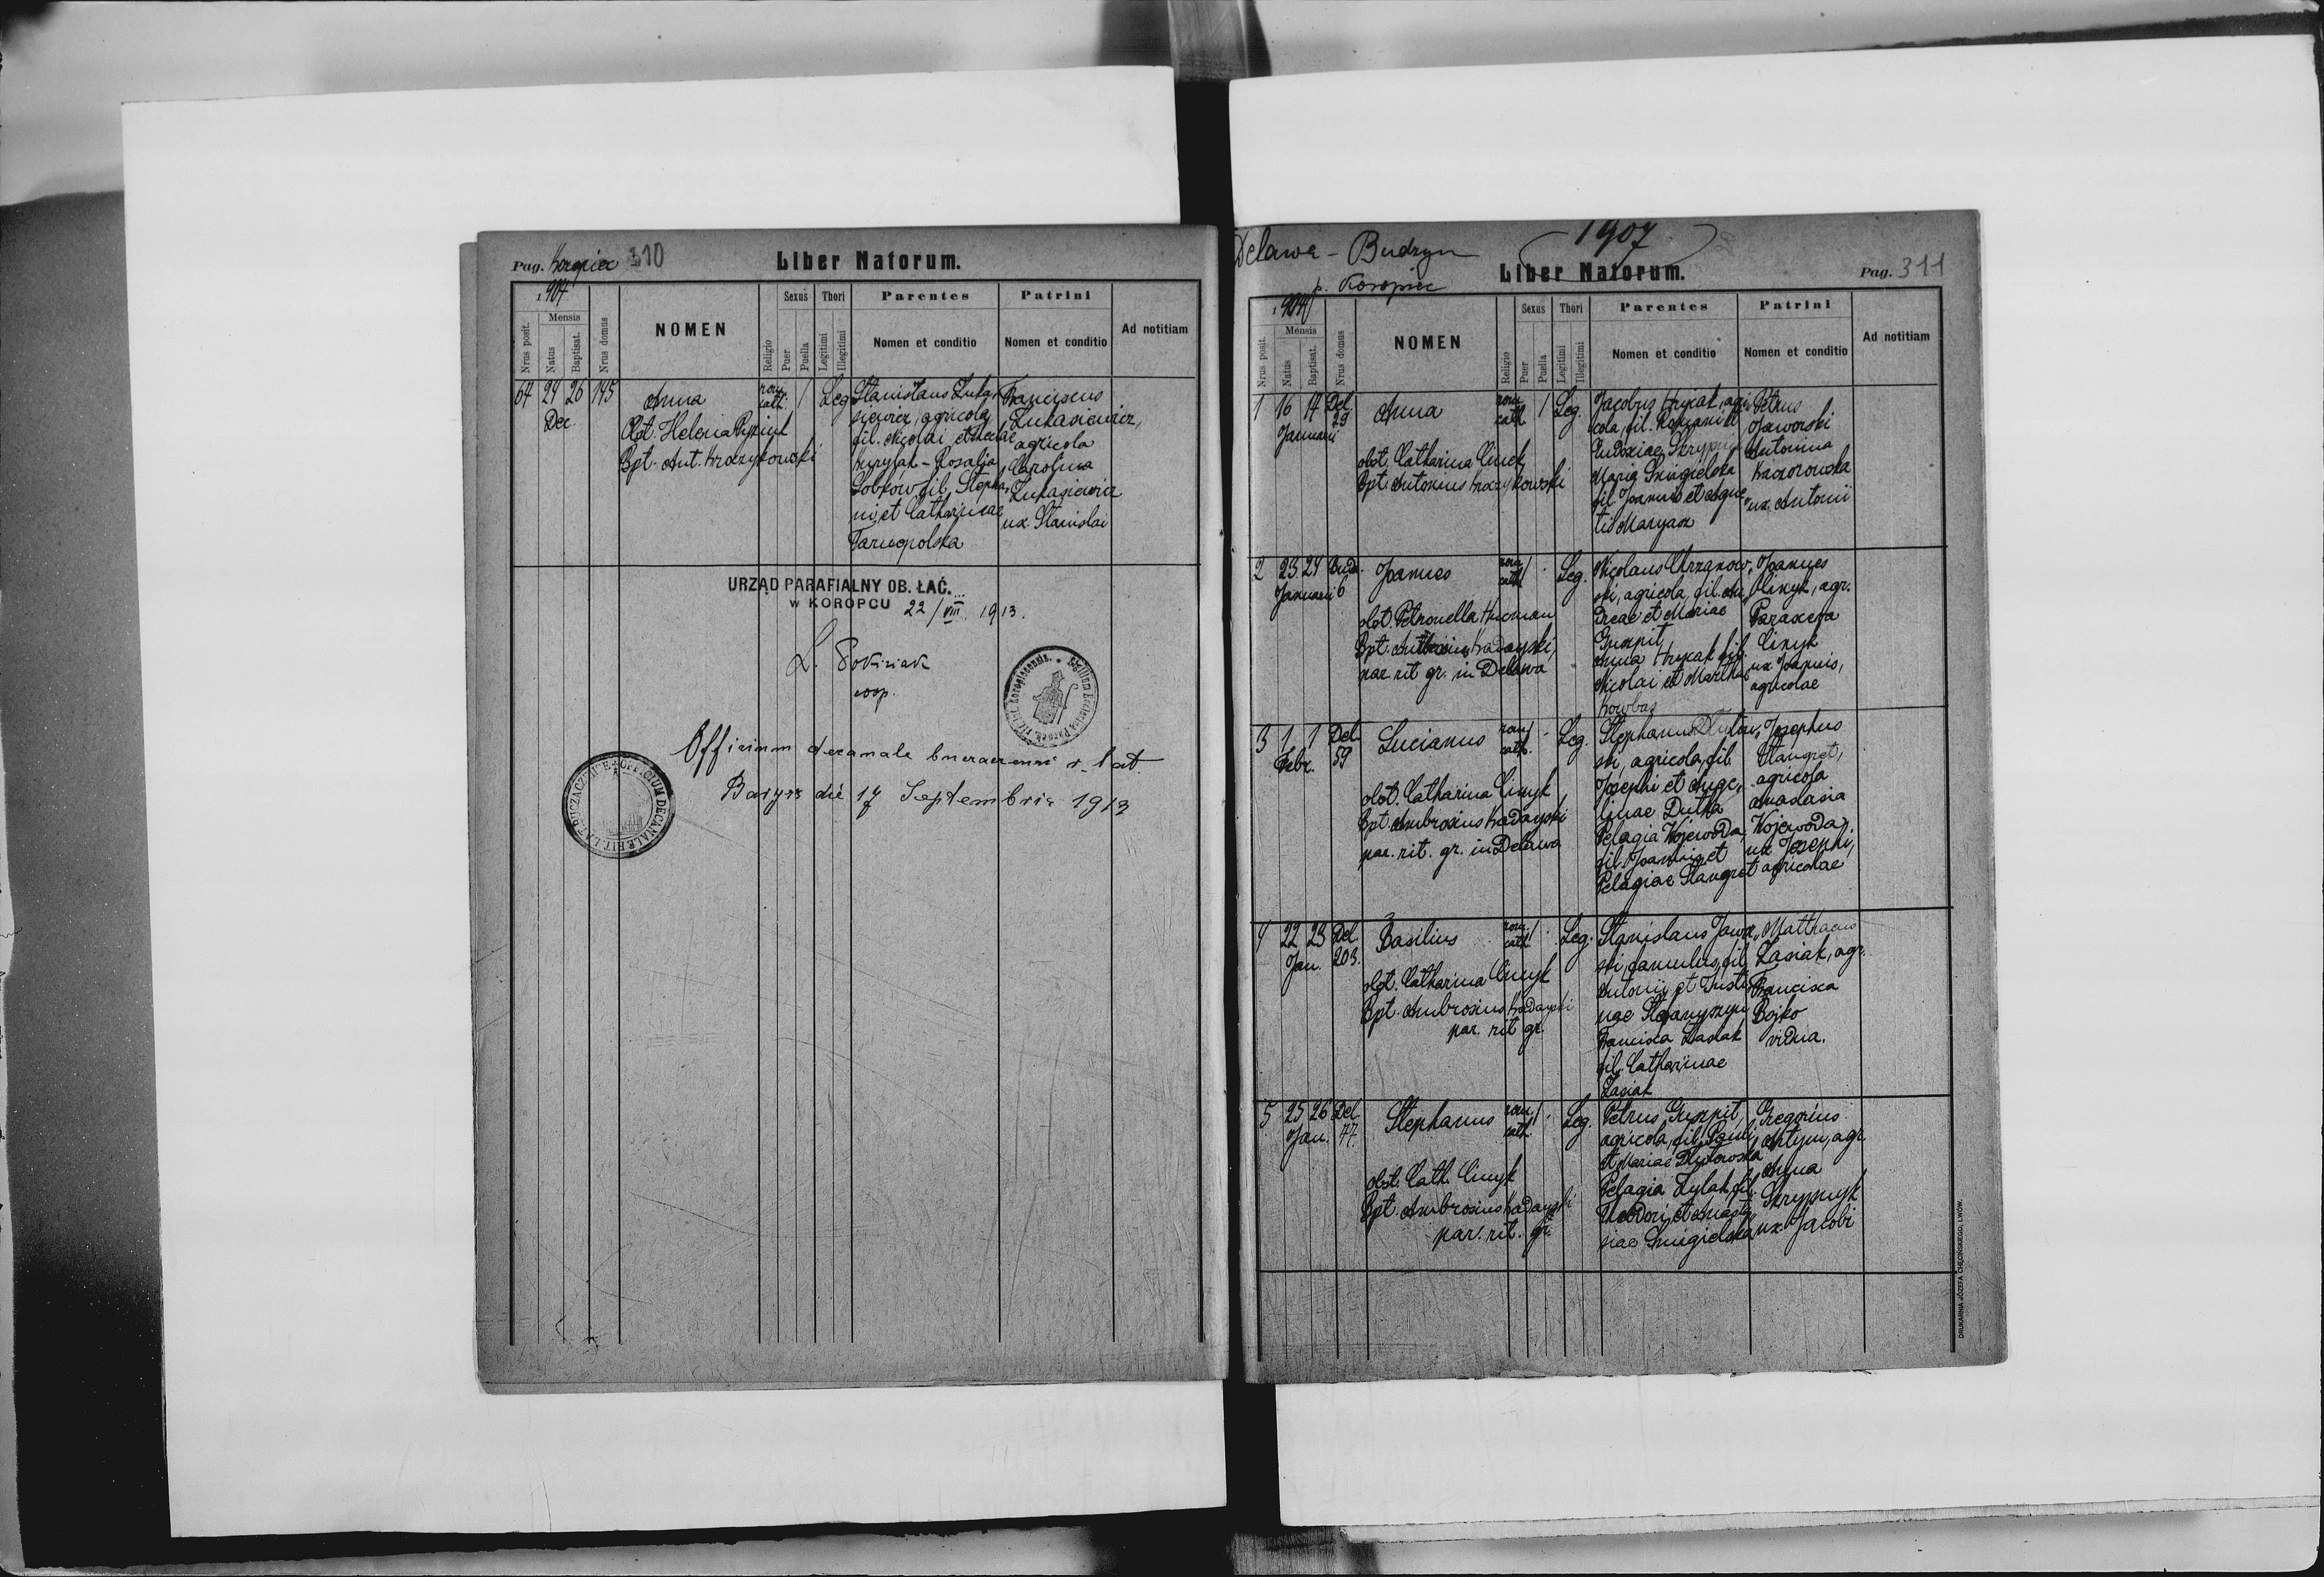 Pag. Koropiec 310
Liber Natorum.
1907
Nrus posit.
Mensis
Natus
Baptisat.
Nrus domus
NOMEN
Religio
Sexus
Puer
Puella
Thori
Legitimi
Illegitimi
Parentes
Nomen et conditio
Patrini
Nomen et conditio
Ad notitiam
64 24 26 145
Dec.
Anna
Obst. Helena
Bpt. Ant. Krarzykowski
rom. cath. / Leg
Stanislaus Luka-
siewicz, agricola,
fil. Nicolai et Theclae
Kurylak - Rosalia
Sobkow fil. Stepha-
ni et Catharinae
Tarnopolska
Franciscus
Lukasiewicz,
agricola
Carolina
Lukasiewicz
ux. Stanislai
URZĄD PARAFIALNY OB. ŁAĆ.
W KOROPCU 22/VIII 1913.
coop.
Officium decanale r. lat.
Barysz die 17 Septembris 1913
Delawa - Budzyn
p. Koropiec
1907
Liber Natorum.
Pag. 311
1907
Nrus posit.
Mensis
Natus
Baptisat.
Nrus domus
NOMEN
Religio
Sexus
Puer
Puella
Thori
Legitimi
Illegitimi
Parentes
Nomen et conditio
Patrini
Nomen et conditio
Ad notitiam
1 16 17 Del.
Januarii 29
Anna
obst. Catharina Cinyk
Bpt. Antonius Krarzykowski
rom. cath. / Leg.
Jacobus Hrycak, agri-
cola, fil. et
Eudoxiae Skrypnyk
Maria Smigielska
fil. Joannis et Agne-
tis Maryasz
Petrus
Jaworski
Antonina
Kaczorowska
ux. Antonii
2 23 24 Budz.
Januarii 6
Joannes
obst. Petronella Hucman
Bpt. Kadayski,
par. rit. gr. in Delawa
rom. cath. / Leg.
Nicolaus Chrzanow-
ski, agricola, fil. An-
dreae et Mariae
Guszpit
Anna Hrycak fil.
Nicolai et Marthae
Kowbas
Joannes
Olinyk, agr.
Paraxeva
Cinyk
ux. Joannis,
agricolae
3 1 1 Del.
Febr. 59
Lucianus
obst. Catharina Cinyk
Bpt. Ambrosius Kadayski
par. rit. gr. in Delawa
rom. cath. / Leg.
Stephanus Dlutow-
ski, agricola, fil.
Josephi et Ange-
linae Dutka
Pelagia Wojewoda,
fil. Joannis et
Pelagiae Stangret
Josephus
Stangret,
agricola
Anastasia
Wojewoda
ux. Josephi,
agricolae
4 22 23 Del.
Jan. 203.
Basilius
obst. Catharina Cinyk
Bpt. Ambrosius Kadayski
par. rit. gr.
rom. cath. / Leg.
Stanislaus Jawor-
ski, famulus, fil.
Antonii et Justi-
nae Stefanyszyn
Francisca Zasiak
fil. Catharinae
Zasiak
Matthaeus
Zasiak, agr.
Francisca
Bojko
vidua.
5 25 26 Del.
Jan. 77.
Stephanus
obst. Cath. Cinyk
Bpt. Ambrosius Kadayski
par. rit. gr.
rom. cath. / Leg.
Petrus Guszpit,
agricola, fil. Pauli
et Mariae Dlutowska
Pelagia Zylak, fil.
Theodori et Anasta-
siae Smigielska
Gregorius
Artym, agr.
Anna
Skrypnyk
ux. Jacobi
DRUKARNIA JÓZEFA CHĘCIŃSKIEGO, LWÓW.